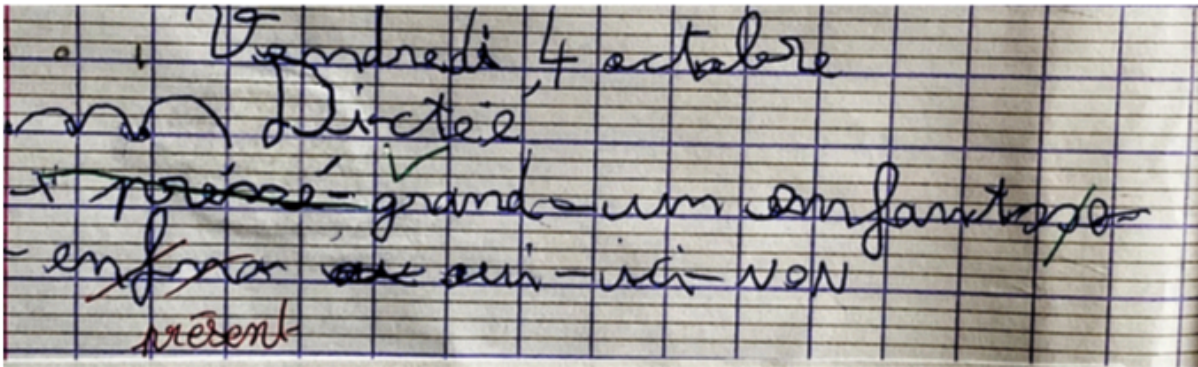 Vendredi 4 octobre
Dictée
grand - un enfant
- oui - ici - NON
présent